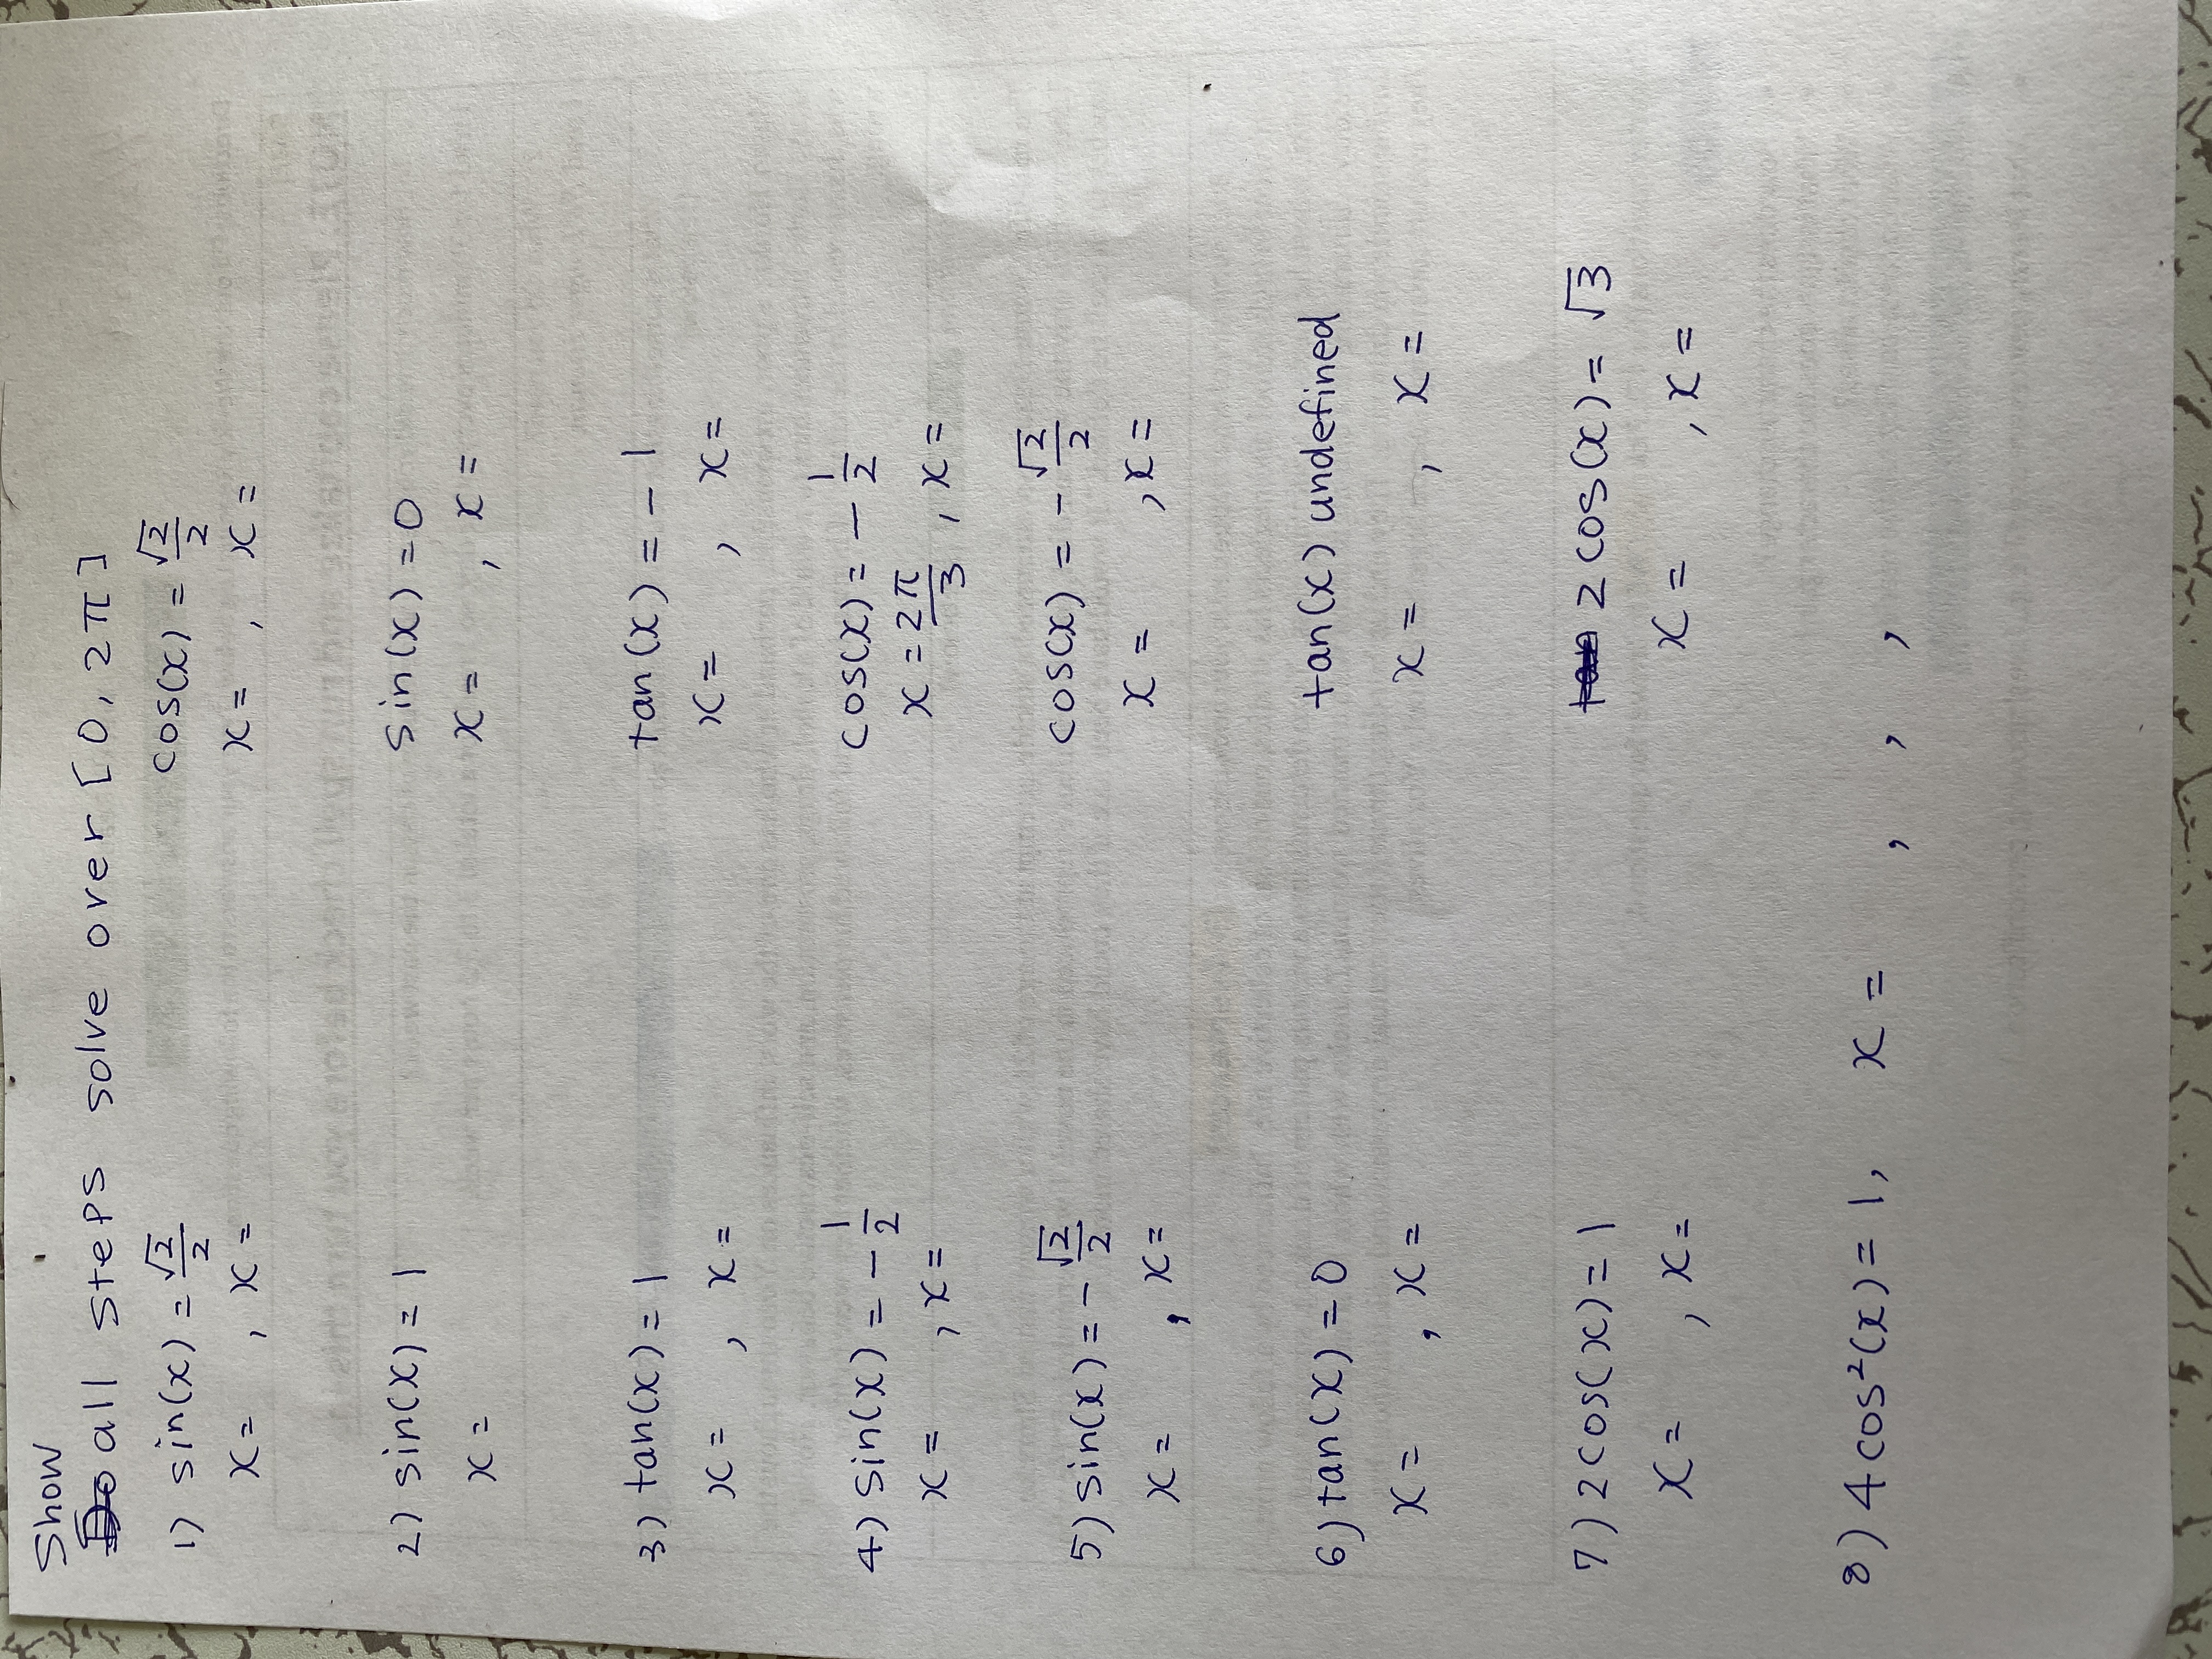 Show
all steps solve over [0, 2π]
1) sin(x) = √2/2 cos(x) = √2/2
x= , x= x= , x=
2) sin(x) = 1 sin(x) = 0
x= x= , x=
3) tan(x) = 1 tan(x) = -1
x= , x= x= , x=
4) sin(x) = -1/2 cos(x) = -1/2
x= , x= x = 2π/3 , x=
5) sin(x) = -√2/2 cos(x) = -√2/2
x= , x= x= , x=
6) tan(x) = 0 tan(x) undefined
x= , x= x= , x=
7) 2cos(x) = 1 2cos(x) = √3
x= , x= x= , x=
8) 4cos²(x) = 1, x= , , ,